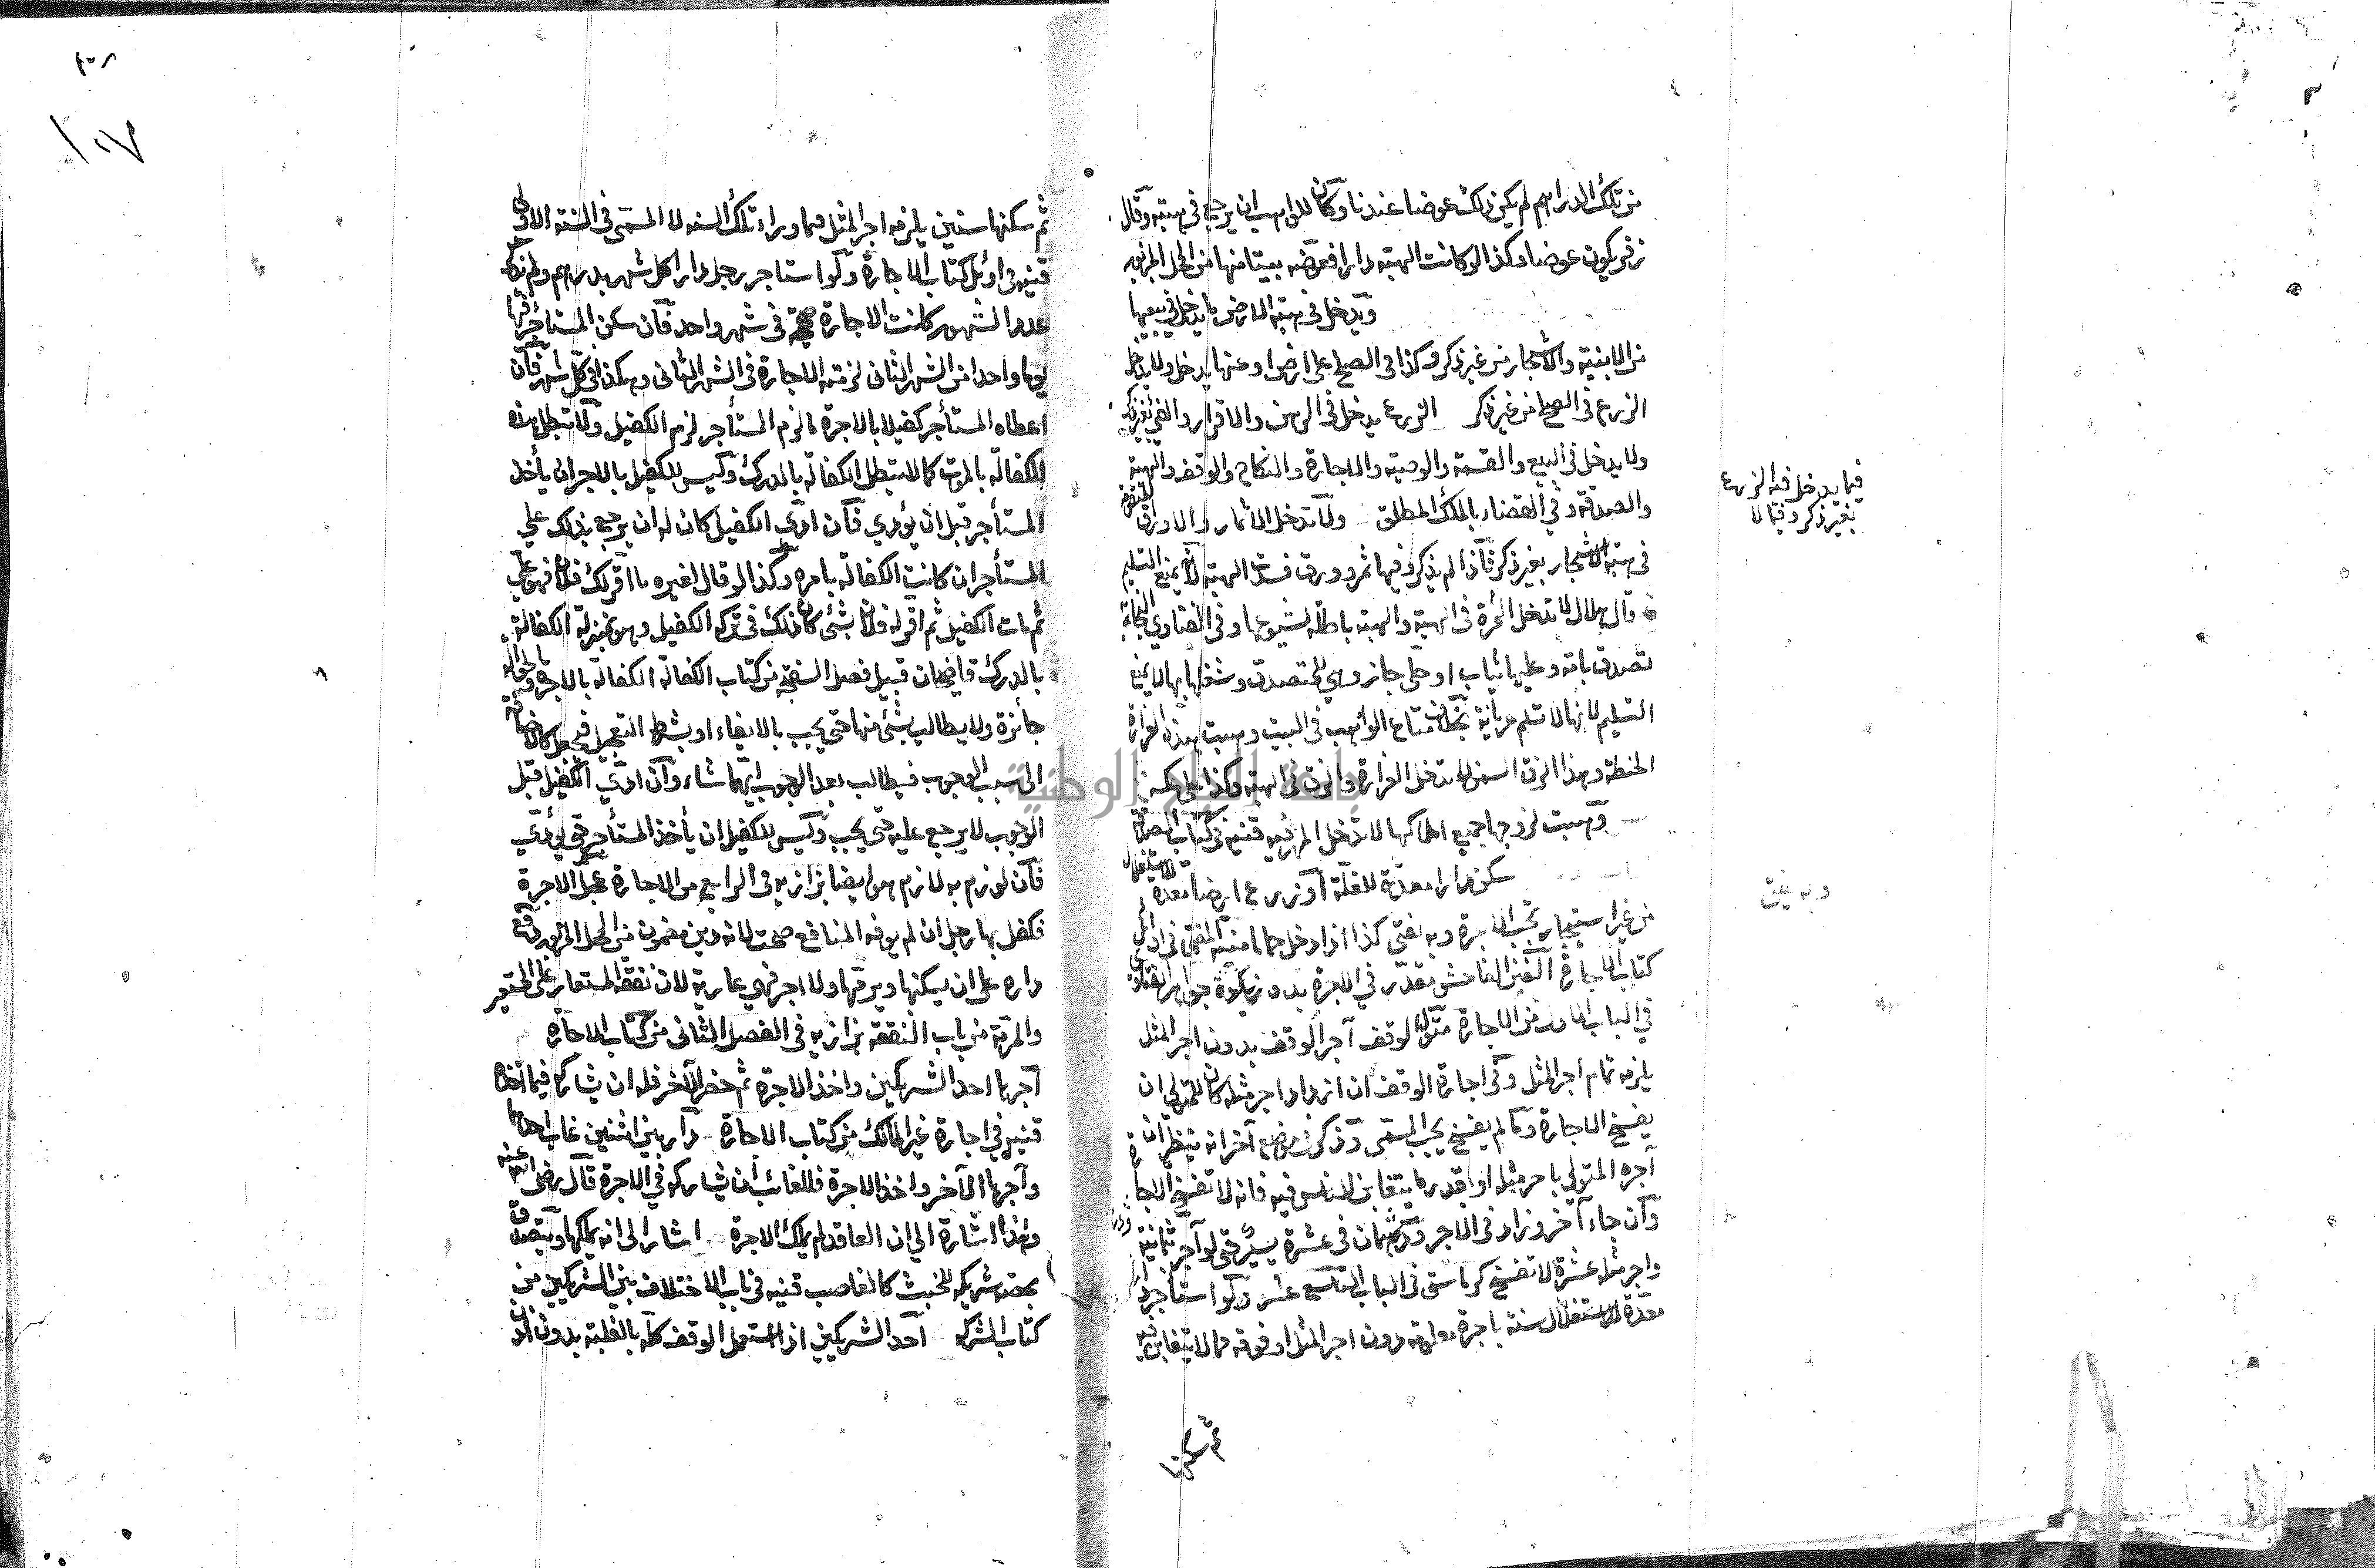 من تلك الدراهم لم يكن ذلك عوضا عندنا وكان للواهب ان يرجع في هبته وقال
زفر يكون عوضا وكذا لو كانت الهبة دارا فعوضه بيتا منها من المحل المزبور
ويدخل في هبة الارض ما يدخل في بيعها
من الابنية والاشجار من غير ذكر وكذا في الصلح على ارض او عنها يدخل ولا يدخل
الزرع في الصلح من غير ذكر الزرع يدخل في الرهن والاقرار والفئ بغير ذكر
ولا يدخل في البيع والقسمة والوصية والاجارة والنكاح والوقف والهبة
والصدقة وفي القضاء بالملك المطلق ولا تدخل الاثمار والاوراق المتقومة
في هبة الاشجار بغير ذكر فاذا لم يذكر وفيها ثمر وورق فسدت الهبة لانه يمنع التسليم
قال هلال لا تدخل الثمرة في الهبة والهبة باطلة لشيوعها وفي الفتاوي
تصدق بامة وعليها ثياب او حلي جاز وهي للمتصدق وشغلها بها لا يمنع
التسليم لانها لا تسلم عريانة بخلاف متاع الواهب في البيت وهبت هذه الغرارة
الحنطة وهذا الزق السمن لا تدخل الغرارة والزق في الهبة وكذا على عكسه
وهبت لزوجها جميع املاكها لا تدخل المهر فيه قنيه في كتاب الصداق
سكن دارا معدة للغلة او زرع ارضا معدة للاستغلال
من غير استيجار تجب الاجرة وبه يفتى كذا اذا دخل حماما منية المفتي في اوائل
كتاب الاجارة الغبن الفاحش مقدر في الاجرة جواهر الفتاوي
في الباب من الاجارة متولي الوقف آجر الوقف بدون اجر المثل
يلزمه تمام اجر المثل وفي اجارة الوقف ان ازداد اجر مثله كان للمتولي ان
يفسخ الاجارة وما لم يفسخ يجب المسمى وذكر في موضع آخر انه ينظر ان
آجره المتولي باجر مثله او بقدر ما يتغابن الناس فيه فانه لا تفسخ الاجارة
وان جاء آخر وزاد في الاجر ودرهمان في عشرة يسير حتى لو آجر ثمانية
واجر مثله عشرة لا تفسخ كرباسي في الباب التاسع عشر ولو استأجر دارا
معدة للاستغلال سنة باجرة معلومة دون اجر المثل او فوقه مما لا يتغابن فيه
ثم سكنها
فيما يدخل فيه الزرع
بغير ذكر وفيما لا
وبه يفتى
١٠٧
ثم سكنها سنين يلزمه اجر المثل فيما وراء تلك السنة لا المسمى في السنة الاولى
قنيه في اوائل كتاب الاجارة ولو استاجر رجل دارا كل شهر بدرهم ولم يذكر
عدد الشهور كانت الاجارة صحيحة في شهر واحد فان سكن المستأجر فيها
يوما واحدا من الشهر الثاني لزمته الاجارة في الشهر الثاني وهكذا في كل شهر فان
اعطاه المستأجر كفيلا بالاجرة ما لزم المستأجر لزم الكفيل ولا تبطل هذه
الكفالة بالموت كما لا تبطل الكفالة بالدرك وليس للكفيل بالاجر ان يأخذ
المستأجر قبل ان يؤدي فان ادى الكفيل كان له ان يرجع بذلك على
المستأجر ان كانت الكفالة بامره وكذا لو قال لغيره ما اقر لك فلان فهو علي
ثم مات الكفيل ثم اقر له فلان بشئ كان ذلك في تركة الكفيل وهو بمنزلة الكفالة
بالدرك قاضيخان قبيل فصل السفتجة من كتاب الكفالة الكفالة بالاجرة والحوالة
جائزة ولا يطالب بشئ منها حتى يجب بالايفاء او بشرط التعجيل
الى سبب الوجوب فيطالب بعد الوجوب ايهما شاء وان ادى الكفيل قبل
الوجوب لا يرجع عليه حتى يجب وليس للكفيل ان يأخذ المستأجر حتى يؤدي
فان لوزم به لازم هو ايضا بزازيه في الرابع من الاجارة عجل الاجرة
فكفل بها رجل ان لم يوفه المنافع صحت لانه دين مضمون من المحل المزبور دفع
داره على ان يسكنها ويرمها ولا اجر فهي عارية لان نفقة المستعار على المستعير
والمرمة من باب النفقة بزازيه في الفصل الثاني من كتاب الاجاره
آجرها احد الشريكين واخذ الاجرة ثم حضر الآخر فله ان يشاركه فيما اخذ
قنيه في اجارة غير المالك من كتاب الاجارة دار بين اثنين غاب احدهما
وآجرها الآخر واخذ الاجرة فللغائب ان يشاركه في الاجرة قال رضي الله عنه
وهذا اشارة الى ان العاقد لم يملك الاجرة اشار الى انه يملكها ويتصدق
بحصة شريكه للخبث كالغاصب قنيه في باب الاختلاف بين الشريكين من
كتاب الشركه احد الشريكين اذا استعمل الوقف كله بالغلبة بدون اذن